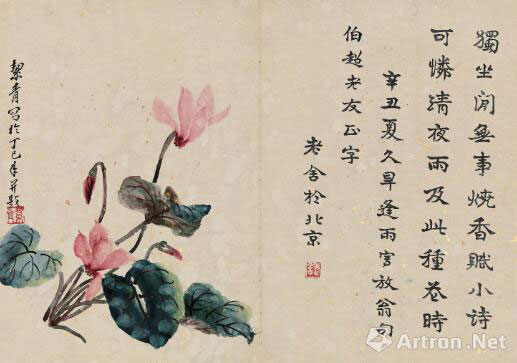 獨坐閒無事燒香賦小詩
可憐清夜雨及此種花時
辛丑夏久旱逢雨寫放翁句
伯超老友正字
老舍於北京
老舍
絜青寫於丁巳年並題
Artron.Net